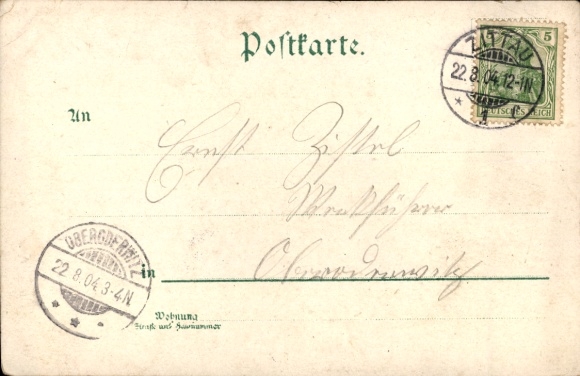 Postkarte.
5
ZITTAU
22.8.04.12-1N
*1f
DEUTSCHES REICH
An
Ernst Zistel
Werkführer
OBERODERWITZ
22.8.04.3-4N
in Oberoderwitz
Wohnung
Straße und Hausnummer